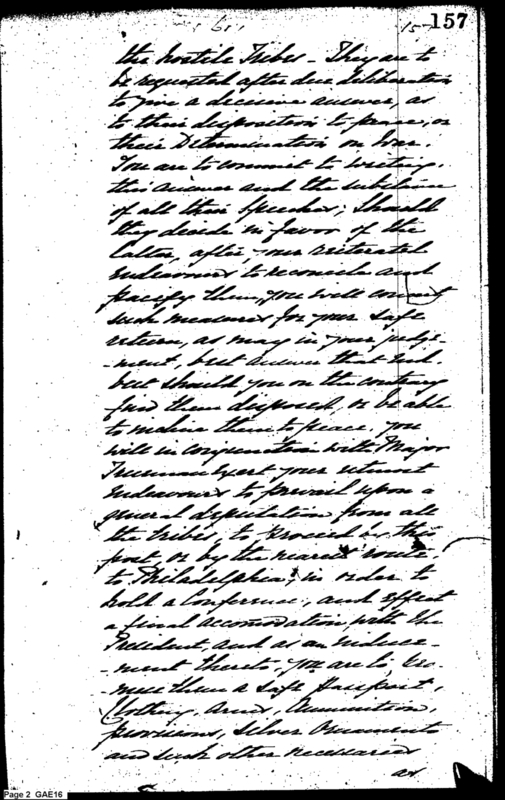 157
the hostile Tribes - They are to
be requested after due deliberation
to give a decisive answer, as
to their disposition to peace, or
their Determination on War.
You are to commit to writing.
this answer and the substance
of all their Speeches; Should
they decide in favor of the
latter, after your reiterated
endeavours to reconcile and
pacify them, you will concert
such measures for your safe
return, as may in your judge-
-ment, best answer that end
but should you on the contrary
find them disposed, or be able
to incline them to peace, you
will in conjunction with Major
Trueman exert your utmost
endeavours to prevail upon a
general deputation from all
the tribes, to proceed by this
post, or by the nearest route
to Philadelphia, in order to
hold a Conference, and effect
a final accomodation with the
President, and as an induce-
-ment thereto, you are to, pro-
mise them a safe Passport,
Clothing, Arms, Ammunition,
provisions, Silver Ornaments
and such other necessaries
as
Page 2 GAE16